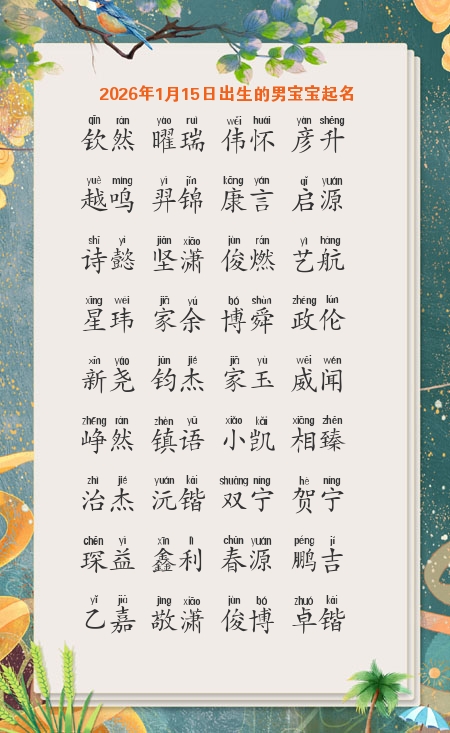 2026年1月15日出生的男宝宝起名
qīn rán yào ruì wěi huái yàn shēng
钦然 曜瑞 伟怀 彦升
yuè míng yì jǐn kāng yán qǐ yuán
越鸣 羿锦 康言 启源
shī yì jiān xiāo jùn rán yì háng
诗懿 坚潇 俊燃 艺航
xīng wěi jiā yú bó shùn zhèng lún
星玮 家余 博舜 政伦
xīn yáo jūn jié jiā yù wēi wén
新尧 钧杰 家玉 威闻
zhēng rán zhèn yǔ xiǎo kǎi xiāng zhēn
峥然 镇语 小凯 相臻
zhì jié yuán kǎi shuāng níng hè níng
治杰 沅锴 双宁 贺宁
chēn yì xīn lì chūn yuán péng jí
琛益 鑫利 春源 鹏吉
yǐ jiā jìng xiāo jùn bó zhuó kǎi
乙嘉 敬潇 俊博 卓锴